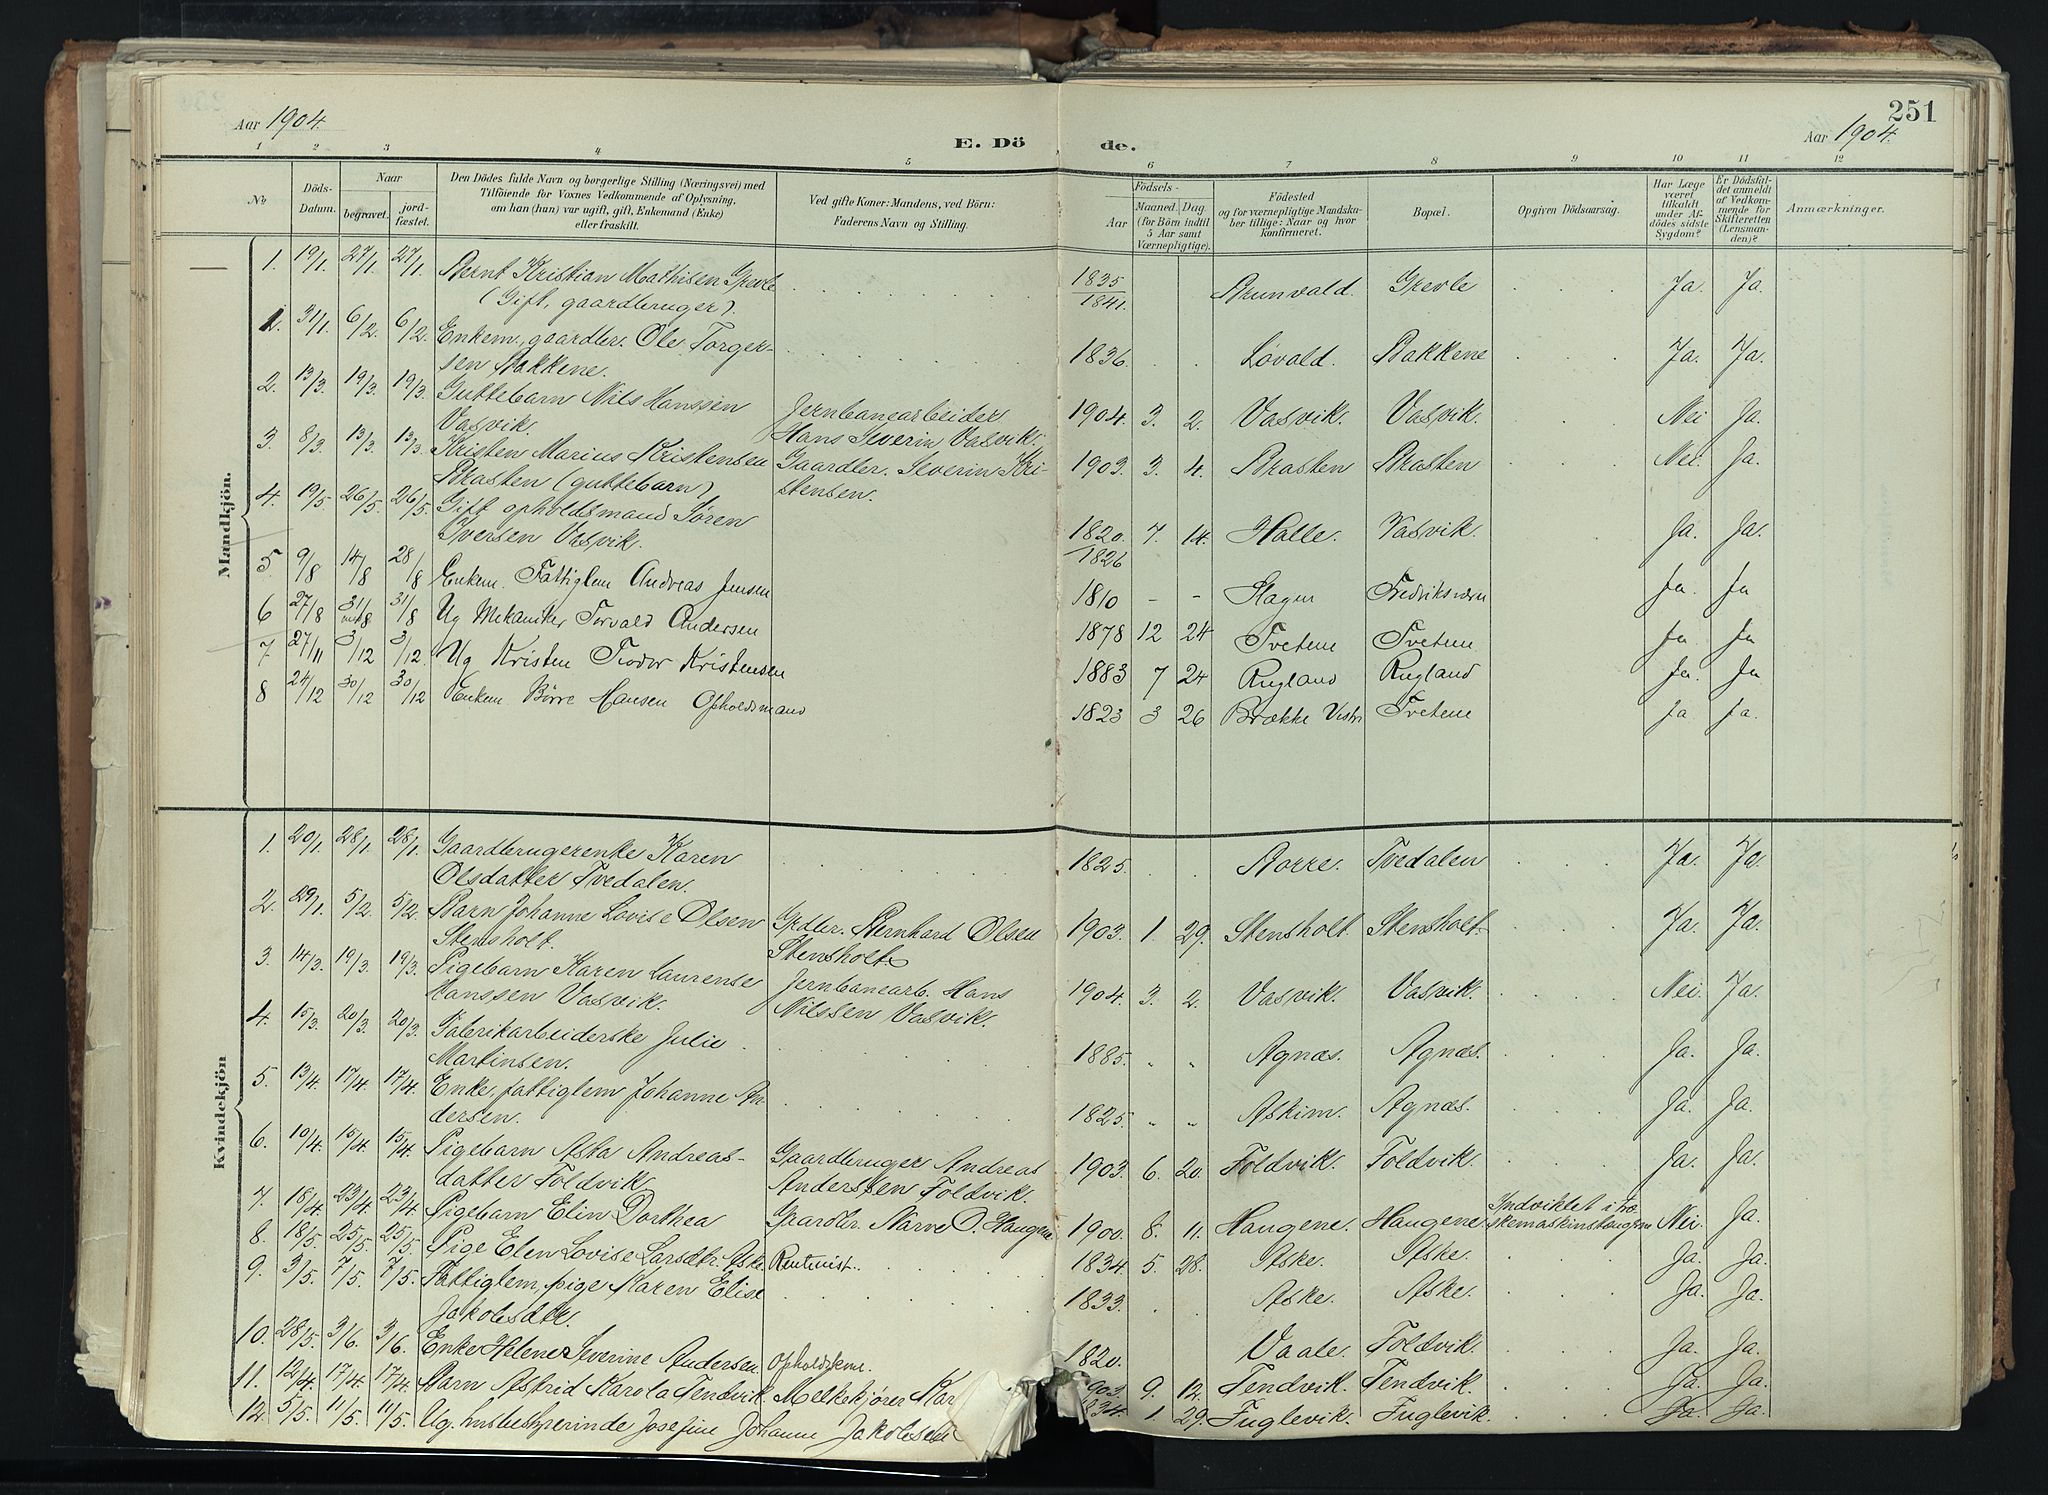 251
Aar 1904.
E. Dö de.
Aar 1904.
1 2 3 4 5 6 7 8 9 10 11 12
No
Döds-Datum.
Naar
begravet.
jordfæstet.
Den Dödes fulde Navn og borgerlige Stilling (Næringsvei) med
Tilföiende for Voxnes Vedkommende af Oplysning,
om han (hun) var ugift, gift, Enkemand (Enke)
eller fraskilt.
Ved gifte Koner: Mandens, ved Börn:
Faderens Navn og Stilling.
Födsels-
Aar
Maaned. Dag.
(for Börn indtil
5 Aar samt
Værnepligtige).
Födested
og for værnepligtige Mandskaber tillige: Naar og hvor
konfirmeret.
Bopæl.
Opgiven Dödsaarsag.
Har Læge
været
tilkaldt
under Afdödes sidste
Sygdom?
Er Dödsfaldet anmeldt
af Vedkommende for
Skifteretten
(Lensmanden)?
Anmærkninger.
Mandkjön.
1. 19/1. 27/1. 27/1. Bernt Kristian Mathisen Grevle 1835 Brunvald. Grevle Ja. Ja.
(Gift, gaardbruger). 1841.
2. 31/1. 6/2. 6/2. Enkem., gaardbr. Ole Torger- 1836. Løvald. Bakkene Ja. Ja.
sen Bakkene.
2. 13/3. 19/3. 19/3. Guttebarn Nils Hanssen Jernbanearbeider 1904. 3. 2. Vasvik. Vasvik. Nei Ja.
Vasvik. Hans Severin Vasvik.
3. 8/3. 13/3. 13/3. Kristen Marius Kristensen Gaardbr. Severin Kri- 1903. 3. 4. Brasten Brasten Nei. Ja.
Brasten (guttebarn) stensen.
4. 19/5. 26/5. 26/5. Gift opholdsmand Søren 1820. 7. 14. Halle. Vasvik. Ja. Ja.
Iversen Vasvik. 1826
5 9/8 14/8 28/8 Enkem. Fattiglem Andreas Jensen 1810 - - Slagen Fredriksværn Ja. Ja
6 27/8 31/8 31/8 Ug Mekaniker Torvald Andersen 1878 12 24 Tvetene Tvetene Ja. Ja
7 27/11 3/12 3/12. Ug Kristen Teodor Kristensen 1883 7 24 Rugland Rugland Ja. Ja
8 24/12 30/12 30/12 Enkem Børre Hansen Opholdsmand 1823 3 26 Brække Vestre Tvetene Ja Ja.
Kvindekjön
1. 20/1. 28/1. 28/1. Gaardbrugerenke Karen 1825. Borre. Tvedalen Ja. Ja.
Olsdatter Tvedalen.
2. 29/1. 5/2. 5/2. Barn Johanne Lovise Olsen Grdbr. Bernhard Olsen 1903. 1. 29. Stensholt. Stensholt. Ja. Ja.
Stensholt. Stensholt
3. 14/3. 19/3. 19/3. Pigebarn Karen Laurense Jernbanearb. Hans 1904. 3. 2. Vasvik. Vasvik. Nei. Ja.
Hanssen Vasvik. Nilssen Vasvik.
4. 15/3. 20/3. 20/3. Fabrikarbeiderske Julie 1885. " " Agnæs. Agnæs. Ja. Ja.
Martinsen.
5. 13/4. 17/4. 17/4. Enke, fattiglem Johanne An 1825. " " Askim. Agnæs. Ja. Ja.
dersen.
6. 10/4. 15/4. 15/4. Pigebarn Aska Andreas- Gaardbruger Andreas 1903. 6. 20. Foldvik. Foldvik. Ja. Ja.
datter Foldvik. Anderssen Foldvik.
7. 18/4. 23/4. 23/4. Pigebarn Elin Dorthea Gaardbr. Narve O. Haugene 1900. 8. 11. Haugene. Haugene. Indviklet i træ Nei. Ja.
skemaskinstaugene
8. 18/5. 25/5. 25/5. Pige Elen Lovise Larsdtr. Aske Rentenist. 1834. 5. 28. Aske. Aske. Ja. Ja.
9. 3/5. 7/5. 7/5. Fattiglem, pige Karen Elise 1833. Aske. Aske. Ja. Ja.
Jakobsdtr.
10. 28/5. 3/6. 3/6. Enke Helene Severine Andersen. Opholdskone. 1820. Vaale. Foldvik. Ja. Ja.
11. 12/4. 17/4. 17/4. Barn Astrid Karola Tendvik. Melkekjører Kar 903. 9. 12. Tendvik. Tendvik. Ja. Ja.
12 5/5. 11/5. 11/5. Ug. husbestyrerinde Josefine Johanne Jakobsen 834. 1. 29. Fuglevik. Fuglevik. Ja. Ja.